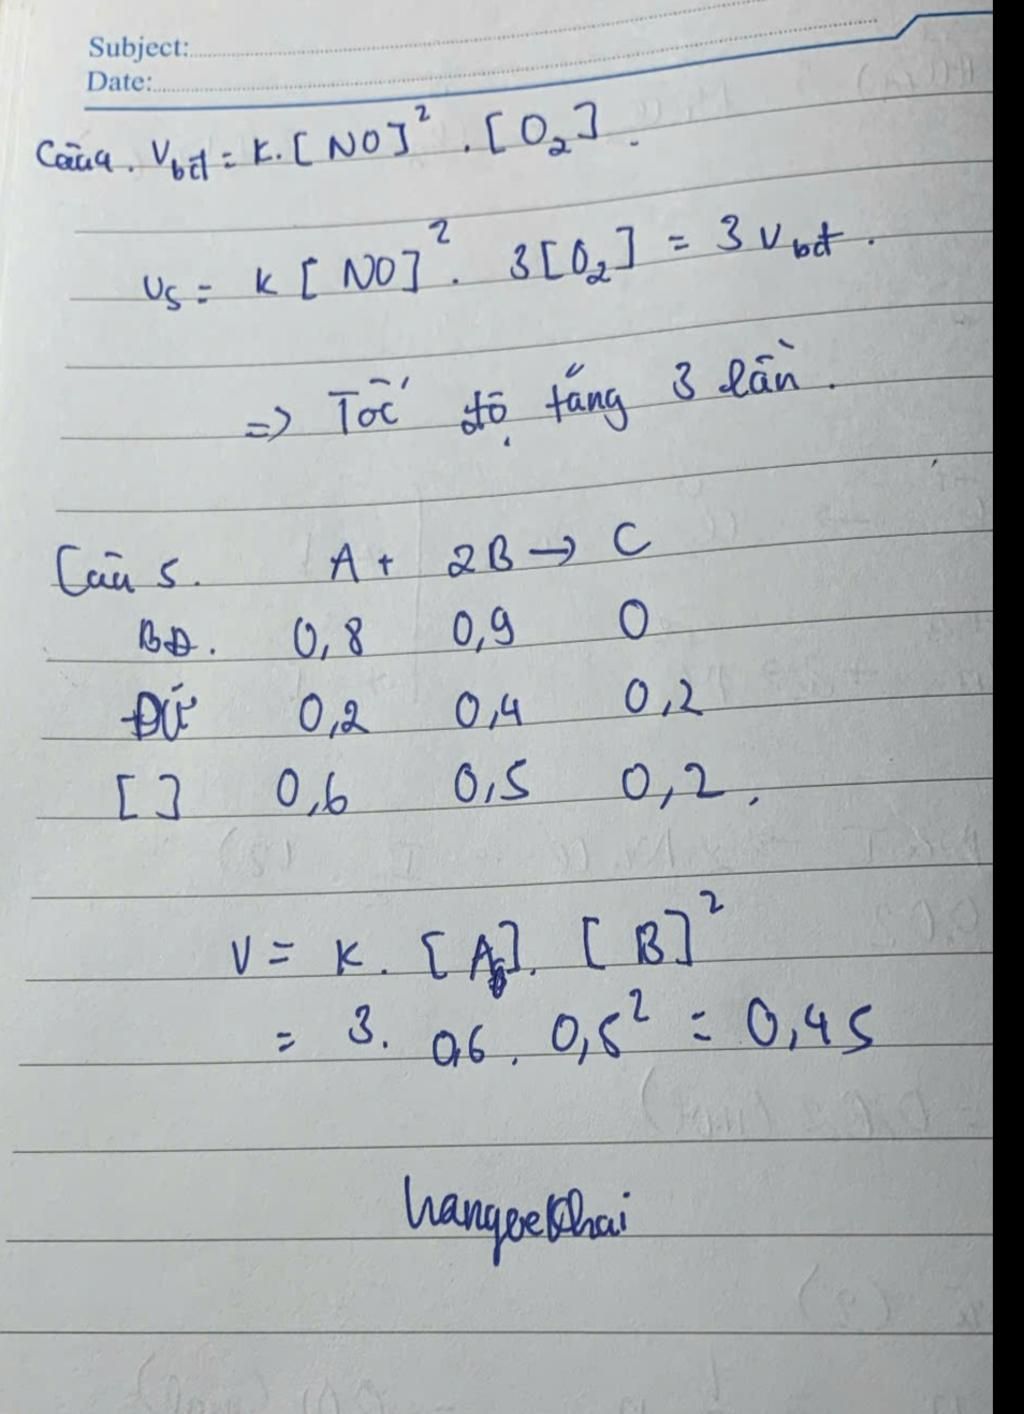 Subject:
Date:
Câu 4. V bđ = K. [NO]². [O₂].
v_s = K [NO]². 3[O₂] = 3 v bđ.
=> Tốc độ tăng 3 lần.
Câu 5. A + 2B → C
BĐ. 0,8 0,9 0
ĐƯ 0,2 0,4 0,2
[ ] 0,6 0,5 0,2.
V = K. [A]. [B]²
= 3. 0,6. 0,5² = 0,45